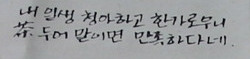 내 인생 청아하고 한가로우니
茶 두어 말이면 만족하다네.